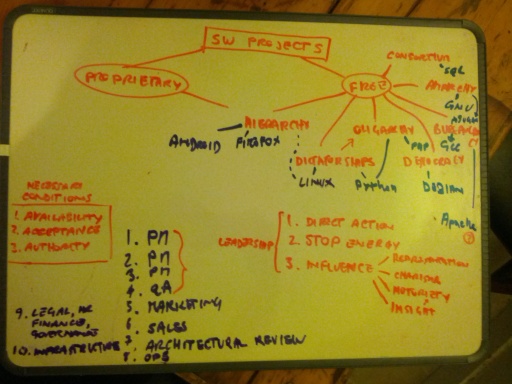 SW PROJECTS
PROPRIETARY
FREE
CONSORTIUM
SQL
ANARCHY
GNU
HIERARCHY
ANDROID
FIREFOX
OLIGARCHY
GCC
DICTATORSHIPS
LINUX
PYTHON
PHP
DEMOCRACY
DEBIAN
Apache
?
NECESSARY
CONDITIONS
1. AVAILABILITY
2. ACCEPTANCE
3. AUTHORITY
LEADERSHIP
1. DIRECT ACTION
2. STOP ENERGY
3. INFLUENCE
CHARISMA
INSIGHT
1. PM
2. PM
3. PM
4. QA
5. MARKETING
6. SALES
7. ARCHITECTURAL REVIEW
8. OPS
9. LEGAL, HR
FINANCE,
GOVERNANCE
10. INFRASTRUCTURE